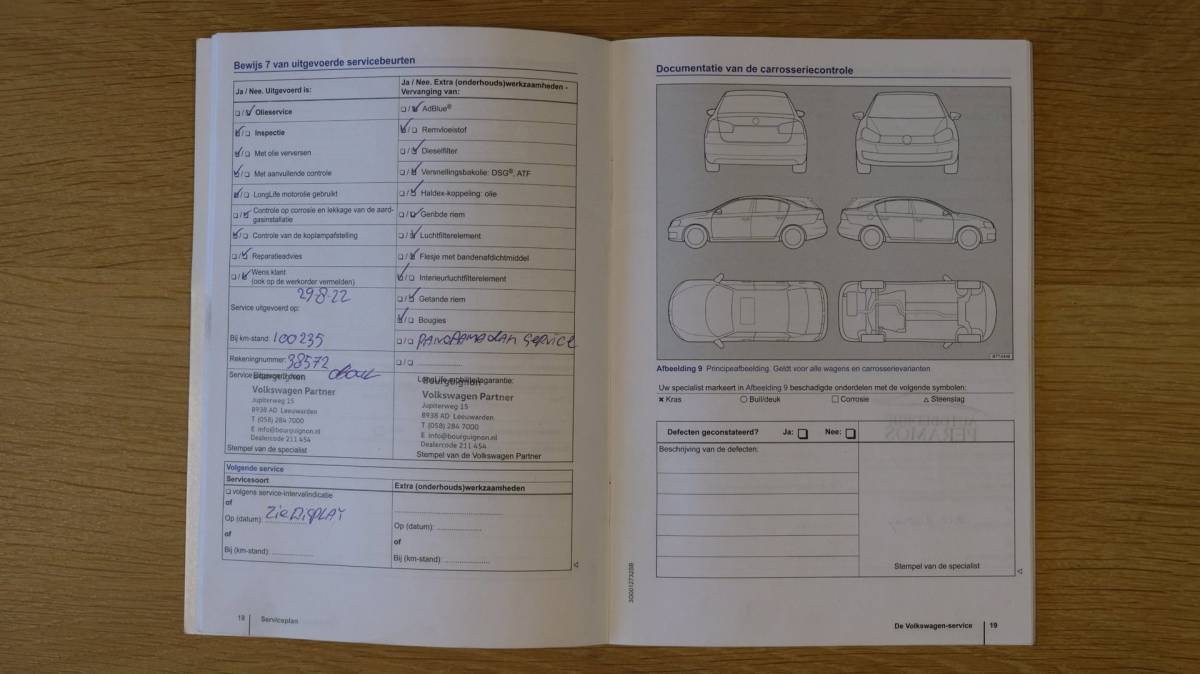 Bewijs 7 van uitgevoerde servicebeurten
Ja / Nee. Uitgevoerd is:
Olieservice
Inspectie
Met olie verversen
Met aanvullende controle
LongLife motorolie gebruikt
Controle op corrosie en lekkage van de aard-
gasinstallatie
Controle van de koplampafstelling
Reparatieadvies
Wens klant
(ook op de werkorder vermelden)
Service uitgevoerd op:
29-8-22
Bij km-stand: 100235
Rekeningnummer: 38572
Service uitgevoerd door
Bourguignon
Volkswagen Partner
Jupiterweg 15
8938 AD Leeuwarden
T (058) 284 7000
E info@bourguignon.nl
Dealercode 211 454
Stempel van de specialist
Ja / Nee. Extra (onderhouds)werkzaamheden -
Vervanging van:
AdBlue®
Remvloeistof
Dieselfilter
Versnellingsbakolie: DSG®, ATF
Haldex-koppeling: olie
Geribde riem
Luchtfilterelement
Flesje met bandenafdichtmiddel
Interieurluchtfilterelement
Getande riem
Bougies
PANORAMADAK SERVICE
LongLife mobiliteitsgarantie:
Bourguignon
Volkswagen Partner
Jupiterweg 15
8938 AD Leeuwarden
T (058) 284 7000
E info@bourguignon.nl
Dealercode 211 454
Stempel van de Volkswagen Partner
Volgende service
Servicesoort
volgens service-intervalindicatie
of
Op (datum): Zie DISPLAY
of
Bij (km-stand):
Extra (onderhouds)werkzaamheden
Op (datum):
of
Bij (km-stand):
18 Serviceplan
Documentatie van de carrosseriecontrole
Afbeelding 9 Principeafbeelding. Geldt voor alle wagens en carrosserievarianten.
Uw specialist markeert in Afbeelding 9 beschadigde onderdelen met de volgende symbolen:
Kras Buil/deuk Corrosie Steenslag
Defecten geconstateerd? Ja: Nee:
Beschrijving van de defecten:
Stempel van de specialist
De Volkswagen-service 19